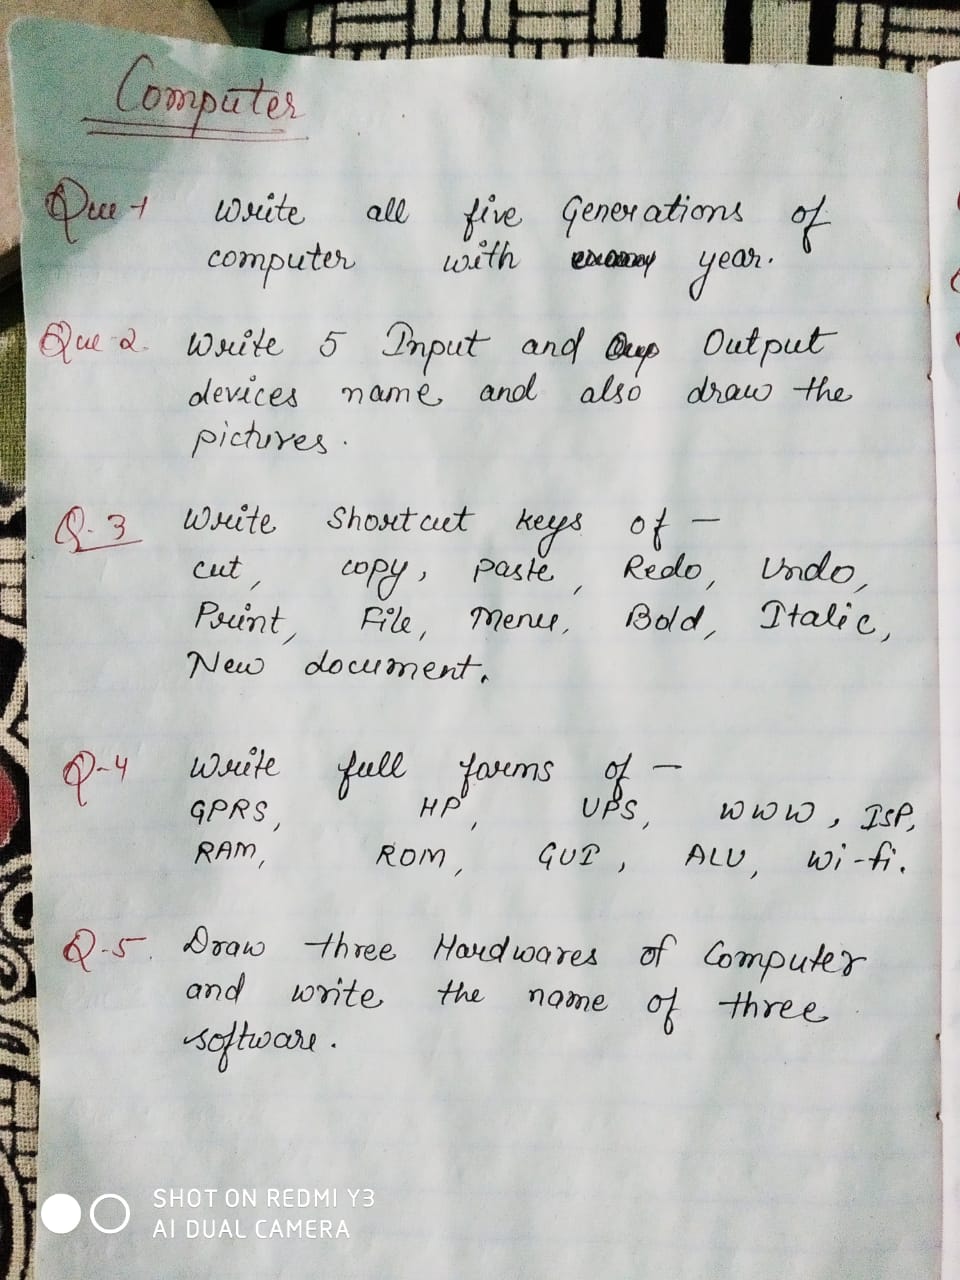 Computer
Que-1 Write all five Generations of
computer with year.
Que-2. Write 5 Input and Output
devices name and also draw the
pictures.
Q-3 Write Shortcut keys of -
cut, copy, Paste, Redo, Undo,
Print, File, Menu, Bold, Italic,
New document.
Q-4 Write full forms of -
GPRS, HP, UPS, WWW, ISP,
RAM, ROM, GUI, ALU, Wi-fi.
Q-5. Draw three Hardwares of Computer
and write the name of three
software.
SHOT ON REDMI Y3
AI DUAL CAMERA